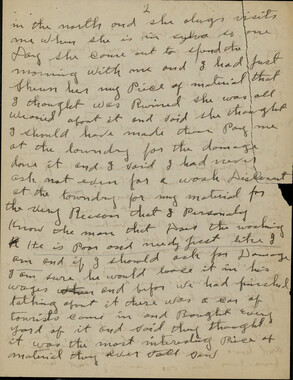 2
in the north and she always visits
me when she is in Sylva so one
Day she come out to spend the
morning with me and I had just
shown her my Piece of material that
I thought was Ruined she was all
worried about it and said she thought
I should have made them Pay me
at the laundry for the damage
done it and I said I had never
ask not even for a wash Discount
at the laundry for my material for
the very Reason that I Personly
Know the man that Does the washing
He is Poor and needy just like I
am and if I should ask for Damage
I am sure he would loose it in his
wages and befor we had finished
talking about it there was a car of
tourists come in and Bought every
yard of it and said they thought
it was the most interesting Piece of
material they ever